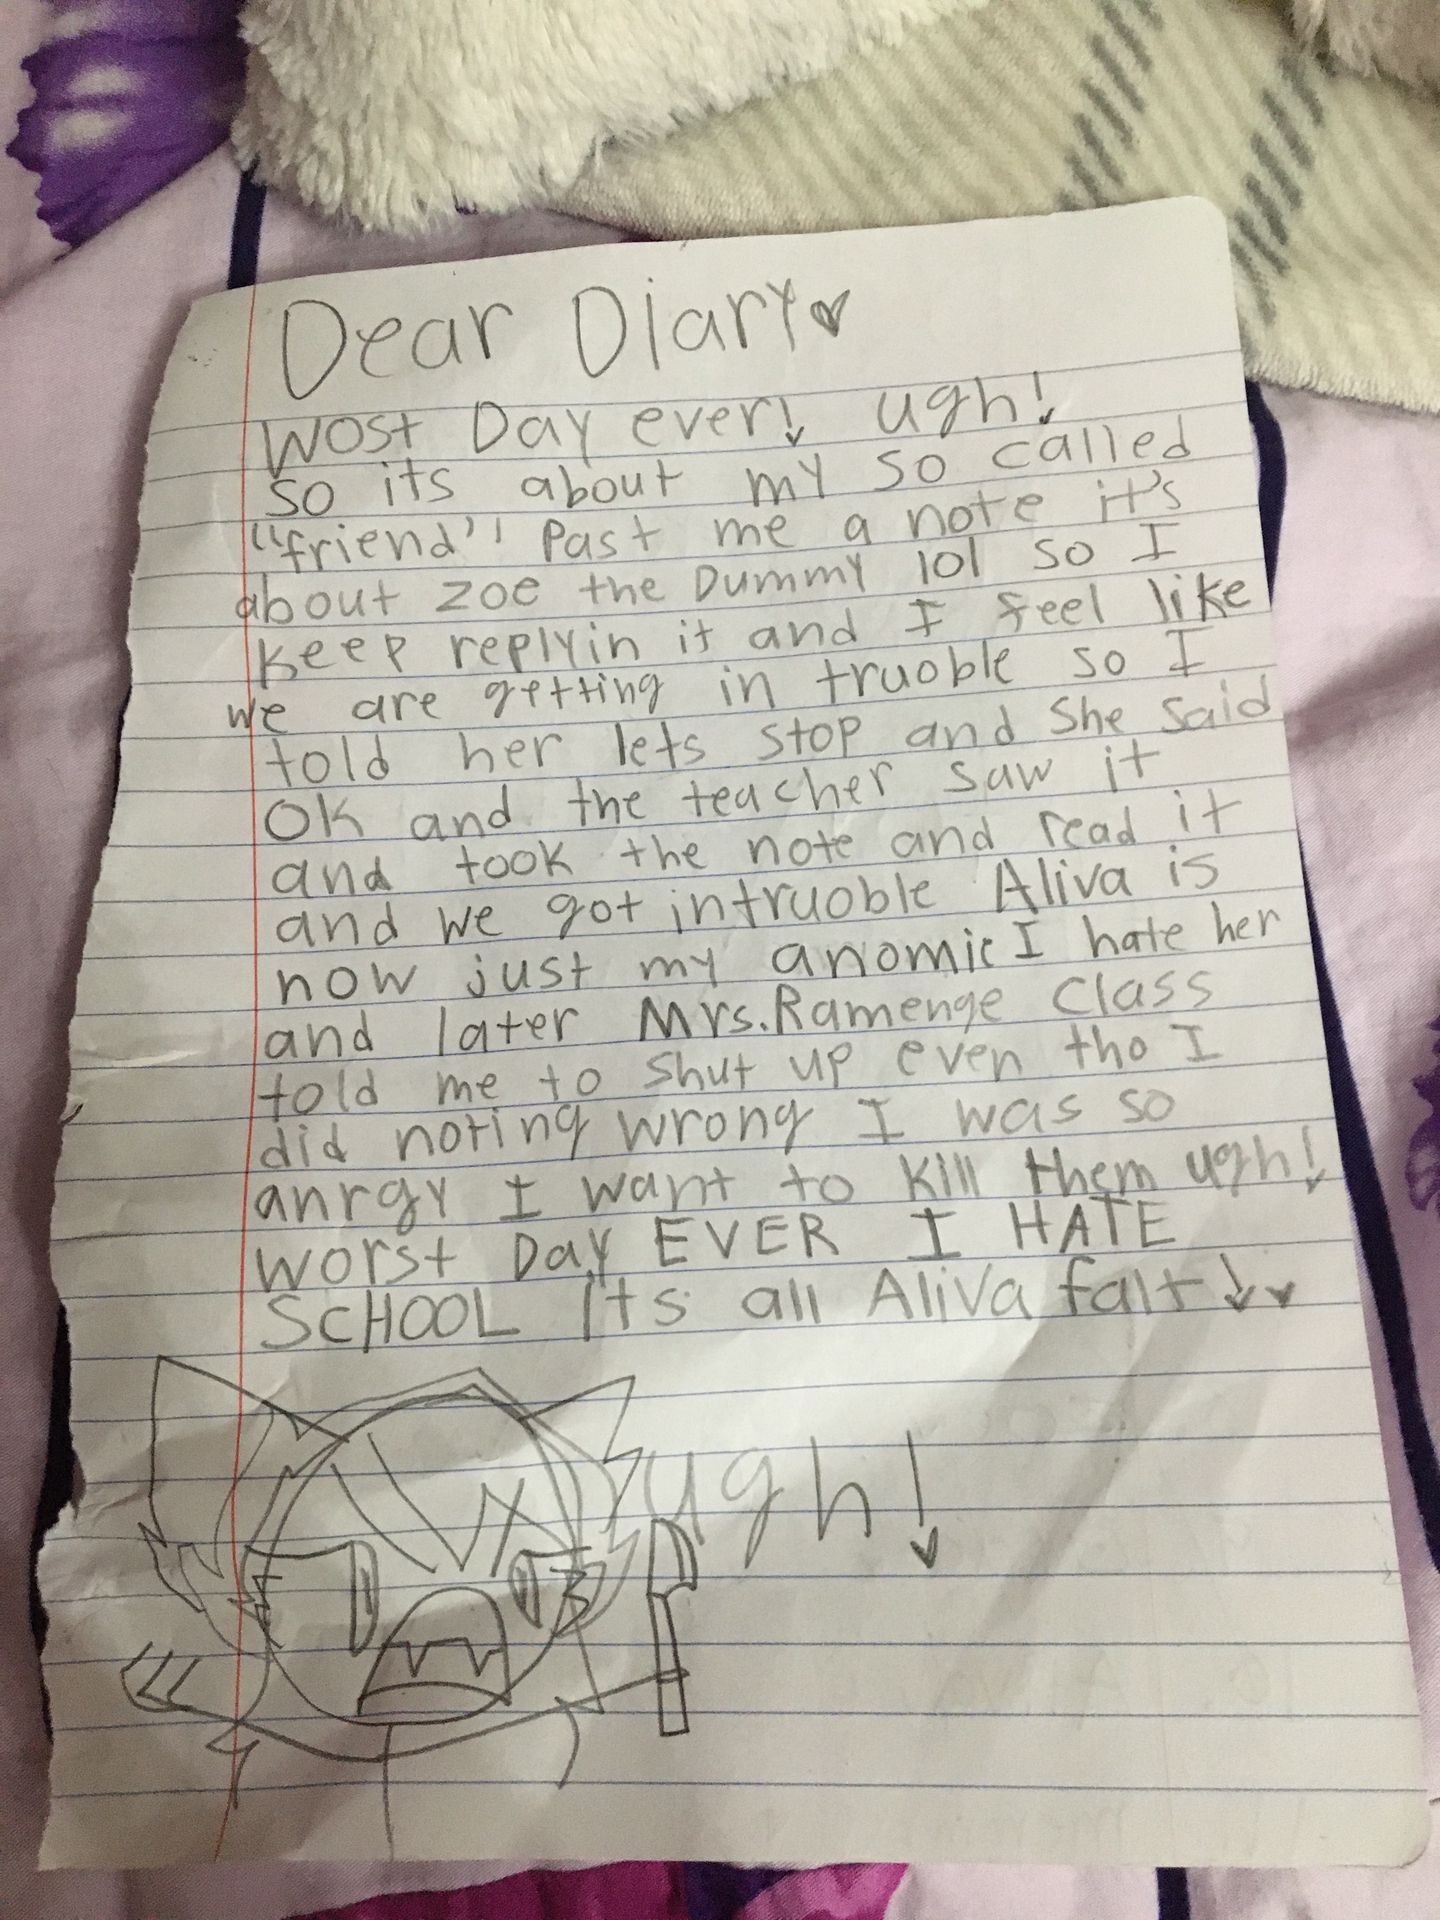 Dear Diary
Wost Day ever! ugh!
so its about my so called
"friend" Past me a note it's
about zoe the Dummy lol so I
keep replyin it and I feel like
we are getting in truoble so I
told her lets stop and she said
OK and the teacher saw it
and took the note and read it
and we got intruoble Aliva is
now just my anomic I hate her
and later Mrs.Ramenge Class
told me to shut up even tho I
did noting wrong I was so
anrgy I want to kill them ugh!
worst Day EVER I HATE
SCHOOL Its all Aliva falt!
ugh!